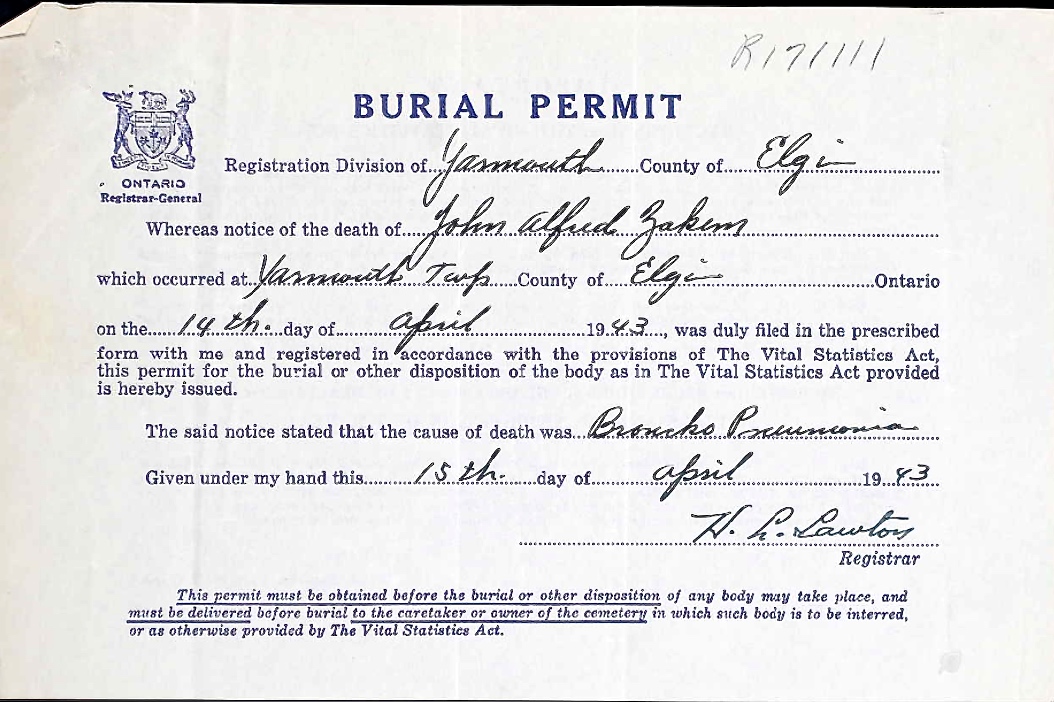 R171111
BURIAL PERMIT
ONTARIO
Registrar-General
Registration Division of Yarmouth County of Elgin
Whereas notice of the death of John Alfred Zakem
which occurred at Yarmouth Twp County of Elgin Ontario
on the 14th. day of April 1943, was duly filed in the prescribed
form with me and registered in accordance with the provisions of The Vital Statistics Act,
this permit for the burial or other disposition of the body as in The Vital Statistics Act provided
is hereby issued.
The said notice stated that the cause of death was Broncho Pneumonia
Given under my hand this 15th. day of April 1943
H. L. Lawton
Registrar
This permit must be obtained before the burial or other disposition of any body may take place, and
must be delivered before burial to the caretaker or owner of the cemetery in which such body is to be interred,
or as otherwise provided by The Vital Statistics Act.